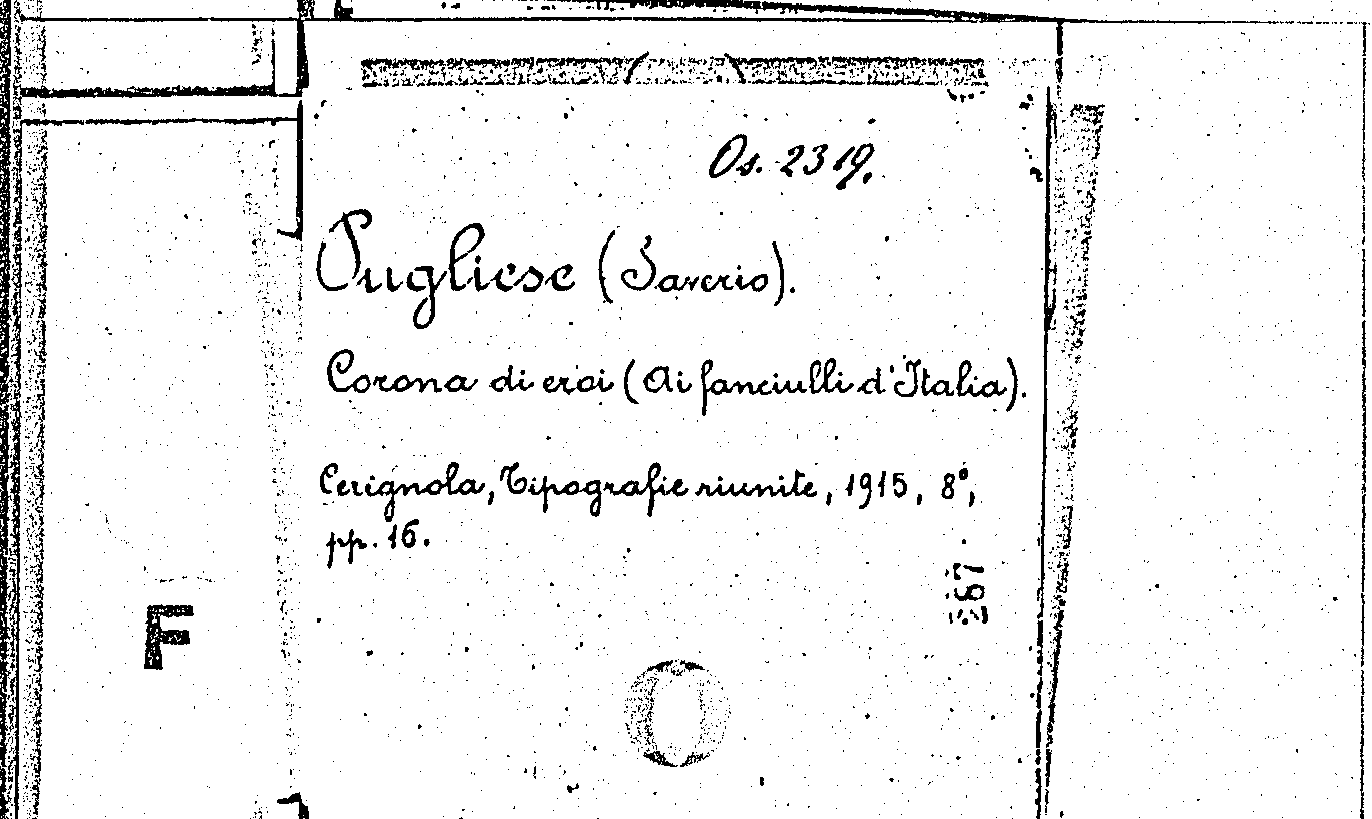 Os. 2319.
Pugliese (Saverio).
Corona di eroi (Ai fanciulli d'Italia).
Cerignola, Tipografie riunite, 1915, 8°,
pp. 16.
F